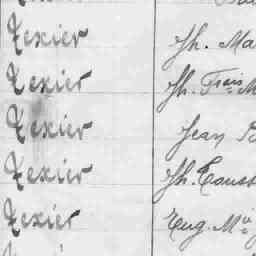 Texier Jh. Ma
Texier Jh. Frois M
Texier Jean
Texier Jh.
Texier Eug. Mie